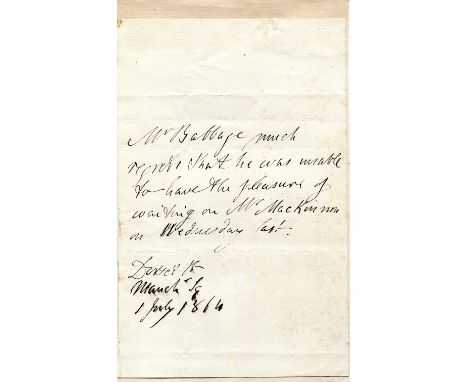 Mr Babbage much
regrets that he was unable
to have the pleasure of
waiting on Mr Mackinnon
on Wednesday last.
Dorset St
Manchr Sq
1 July 1864